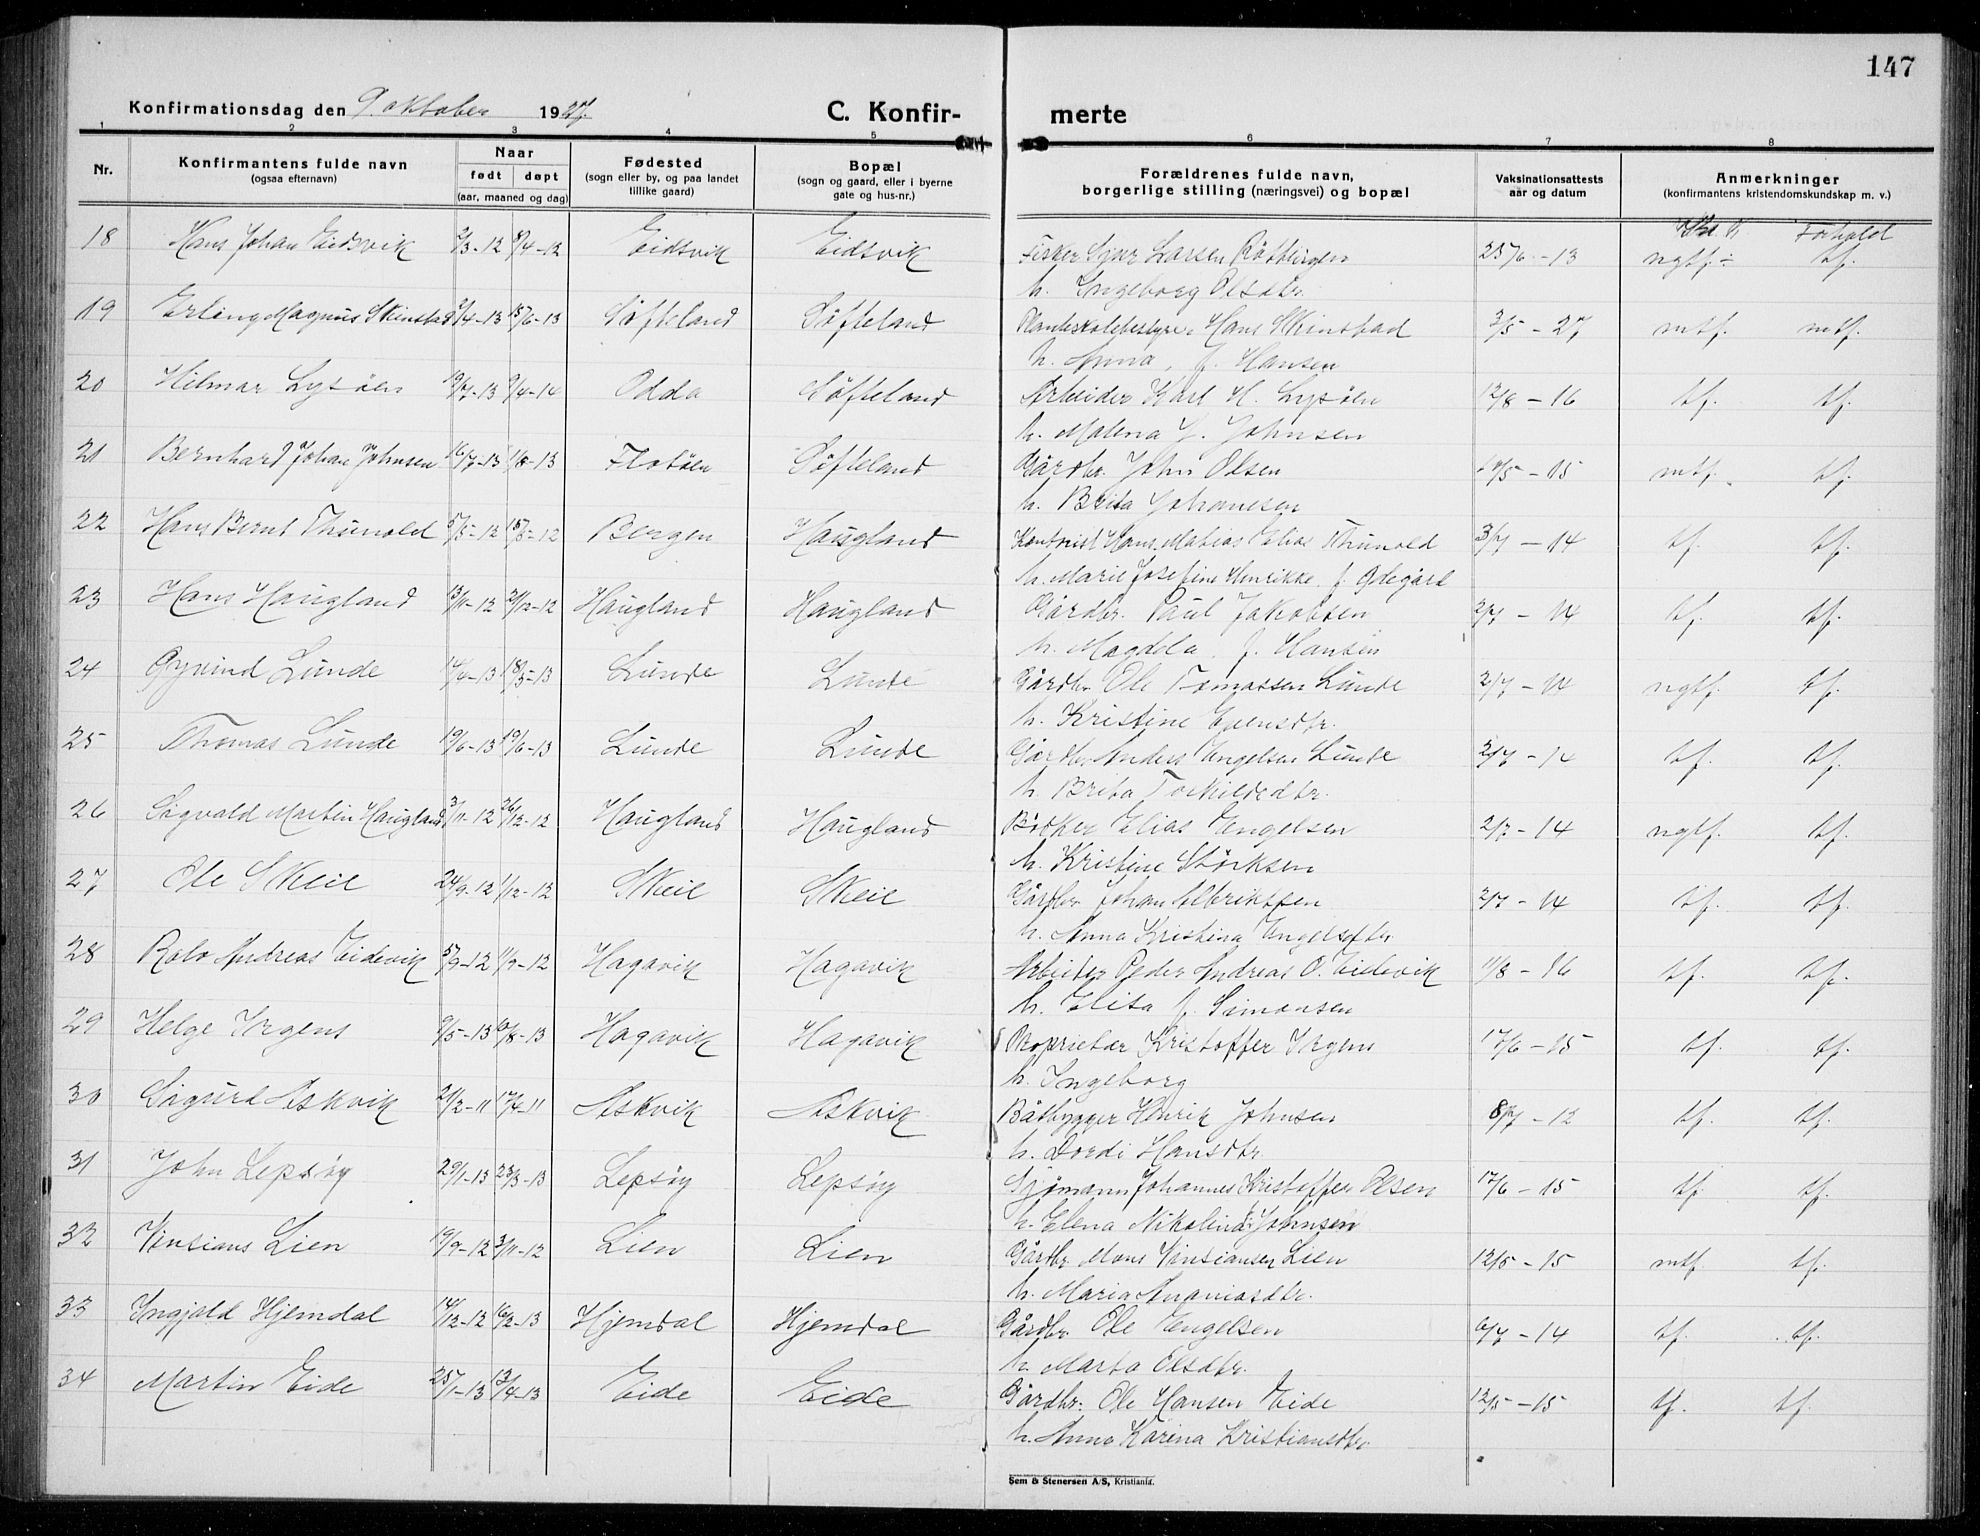 147
Konfirmationsdag den 9. oktober 1927. C. Konfir- merte
1 2 3 4 5 6 7 8
Nr. Konfirmantens fulde navn (ogsaa efternavn) Naar født døpt (aar, maaned og dag) Fødested (sogn eller by, og paa landet tillike gaard) Bopæl (sogn og gaard, eller i byerne gate og hus-nr.) Forældrenes fulde navn, borgerlige stilling (næringsvei) og bopæl Vaksinationsattests aar og datum Anmerkninger (konfirmantens kristendomskundskap m. v.)
Forhold
18 Hans Johan Eidsvik 2/3-12 8/4-12 Eidsvik Eidsvik Fisker Sjur Larsen Røttingen 25/6-13 ngtf. tf.
h. Ingeborg Olsdtr.
19 Erling Magnus Skinstad /4-13 15/6-13 Søfteland Søfteland Planteskolebestyrer Hans Skinstad 3/5-27 mtf. mtf.
h. Anna, f. Hansen
20 Hilmar Lysøen 19/7-13 9/4-14 Odda Søfteland Arbeider Karl H. Lysøen 12/8-16 tf. tf.
h. Malena J. Johnsen
21 Bernhard Johan Johnsen 16/7-13 1/8-13 Flotøen Søfteland Gårdbr. John Olsen /5-15 mtf. tf.
h. Brita Johanesen
22 Hans Bernt Thunold /5-12 /8-12 Bergen Haugland Kontorist Hans Matias Elias Thunold 3/7-14 tf. tf.
h. Marie Josefine Henrikke f. Ødegård
23 Hans Haugland 13/11-12 21/12-12 Haugland Haugland Gårdbr. Paul Jakobsen 2/7-14 tf. tf.
h. Magdela f. Hansen
24 Øyvind Lunde 14/4-13 18/5-13 Lunde Lunde Gårdbr. Ole Tomassen Lunde 2/7-14 ngtf. tf.
h. Kristine Evensdtr.
25 Thomas Lunde 19/6-13 19/6-13 Lunde Lunde Gårdbr. Anders Engelsen Lunde 2/7-14 tf. tf.
h. Brita Torkildsdtr.
26 Sigvald Martin Haugland 3/11-12 26/12-12 Haugland Haugland Bøtker Elias Engelsen 2/7-14 ngtf. tf.
h. Kristine Størksen
27 Ole Skeie 24/9-12 1/12-12 Skeie Skeie Gårdbr. Johan Albriktsen 2/7-14 tf. tf.
h. Anna Kristina Engelsdtr
28 Rolv Andreas Eidevik 5/9-12 /9-12 Hagavik Hagavik Arbeider Peder Andreas O. Eidevik 11/8-16 tf. tf.
h. Elisa f. Simonsen
29 Helge Irgens 9/5-13 /8-13 Hagavik Hagavik Proprietær Kristoffer Irgens 17/6-15 tf. tf.
h. Ingeborg
30 Sigurd Askvik 21/2-11 17/4-11 Askvik Askvik Båtbygger Henrik Johnsen 8/7-12 tf. tf.
h. Dordi Hansdtr.
31 John Lepsøy 29/1-13 23/3-13 Lepsøy Lepsøy Sjømann Johannes Kristoffer Olsen 17/6-15 tf tf.
h. Elena Nikolina Johnsen
32 Vinsians Lien 19/9-12 3/11-12 Lien Lien Gårdbr Mons Vinsiansen Lien 12/5-15 mtf tf.
h. Maria Ananiasdtr.
33 Ingjald Hjemdal 14/12-12 16/2-13 Hjemdal Hjemdal Gårdbr Ole Engelsen 6/7-14 tf. tf.
h. Marta Olsdtr.
34 Martin Eide 25/1-13 13/4-13 Eide Eide Gårdbr. Ole Hansen Eide 12/5-15 tf. tf.
h. Anna Karina Kristiansdtr
Sem & Stenersen A/S, Kristiania.